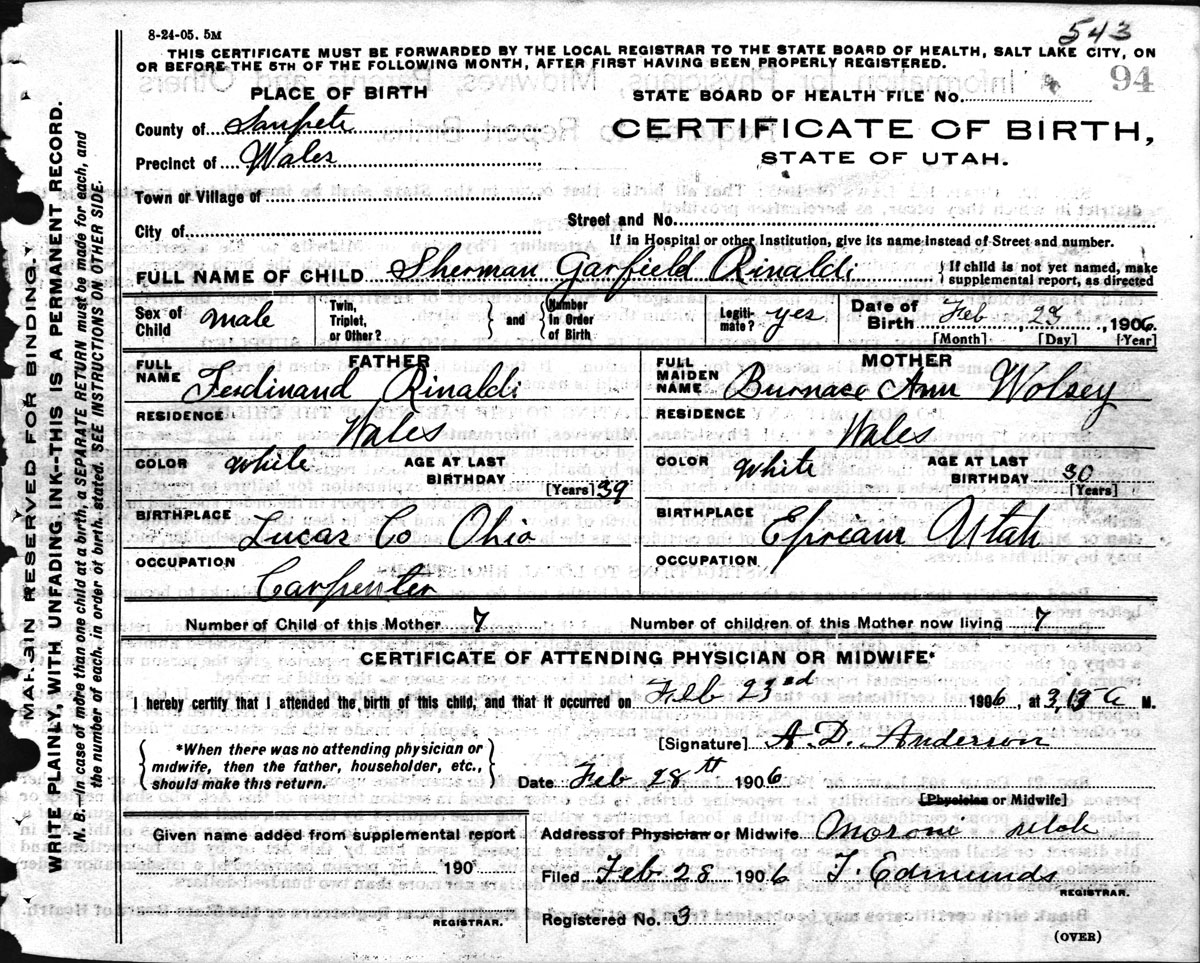 543
8-24-05. 5M
THIS CERTIFICATE MUST BE FORWARDED BY THE LOCAL REGISTRAR TO THE STATE BOARD OF HEALTH, SALT LAKE CITY, ON
OR BEFORE THE 5TH OF THE FOLLOWING MONTH, AFTER FIRST HAVING BEEN PROPERLY REGISTERED.
94
PLACE OF BIRTH
STATE BOARD OF HEALTH FILE No.
County of Sanpete
CERTIFICATE OF BIRTH,
Precinct of Wales
STATE OF UTAH.
Town or Village of
Street and No.
City of
If in Hospital or other Institution, give its name instead of Street and number.
FULL NAME OF CHILD Sherman Garfield Rinaldi
If child is not yet named, make supplemental report, as directed
Sex of Child male
Twin, Triplet, or Other?
and
Number in Order of Birth
Legitimate? yes
Date of Birth Feb, 23, 1906
[Month] [Day] [Year]
FATHER
FULL NAME Ferdinand Rinaldi
RESIDENCE Wales
COLOR White
AGE AT LAST BIRTHDAY 39
[Years]
BIRTHPLACE Lucas Co Ohio
OCCUPATION Carpenter
MOTHER
FULL MAIDEN NAME Burnace Ann Wolsey
RESIDENCE Wales
COLOR White
AGE AT LAST BIRTHDAY 30
[Years]
BIRTHPLACE Epriam Utah
OCCUPATION
Number of Child of this Mother 7
Number of children of this Mother now living 7
CERTIFICATE OF ATTENDING PHYSICIAN OR MIDWIFE*
I hereby certify that I attended the birth of this child, and that it occurred on Feb 23rd 1906, at M.
[Signature] A. D. Anderson
*When there was no attending physician or midwife, then the father, householder, etc., should make this return.
Date Feb 28th 1906
[Physician or Midwife]
Given name added from supplemental report
190
REGISTRAR.
Address of Physician or Midwife Moroni Utah
Filed Feb 28 1906 T. Edmunds
REGISTRAR.
Registered No. 3
(OVER)
MARGIN RESERVED FOR BINDING.
WRITE PLAINLY, WITH UNFADING INK--THIS IS A PERMANENT RECORD.
N. B.--In case of more than one child at a birth, a SEPARATE RETURN must be made for each, and
the number of each, in order of birth, stated. SEE INSTRUCTIONS ON OTHER SIDE.